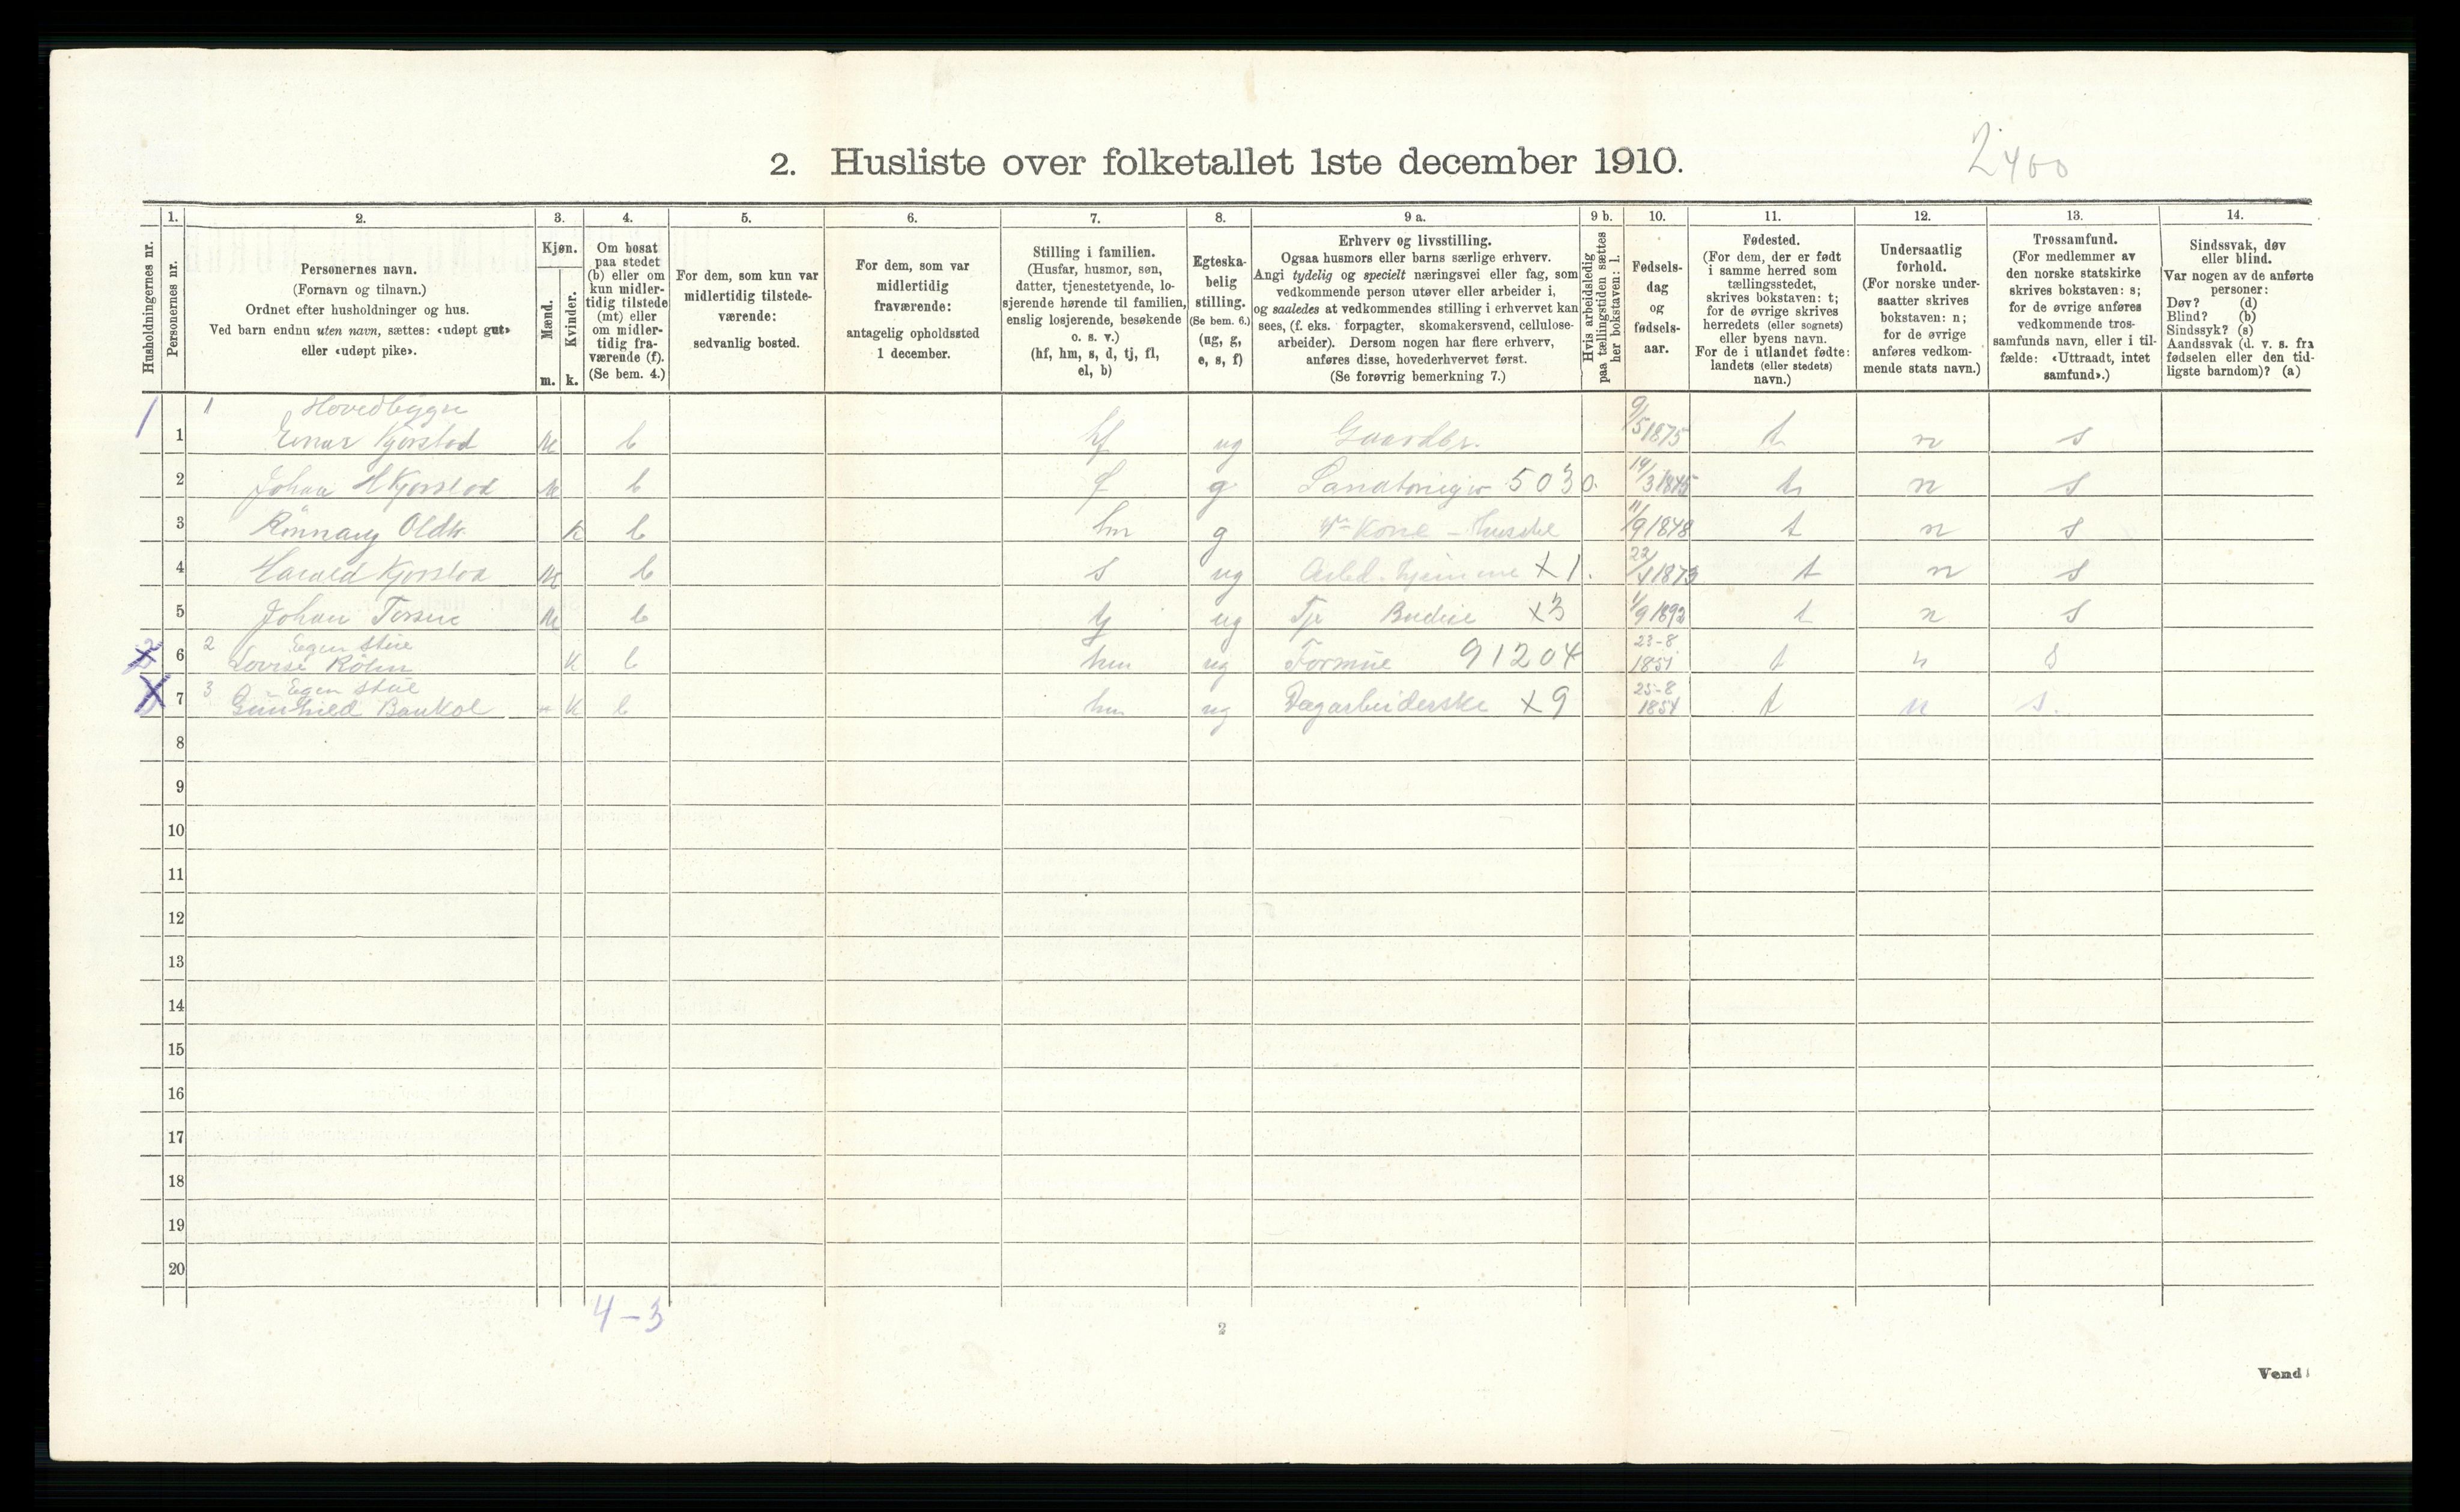 2. Husliste over folketallet 1ste december 1910.
2400
Husholdningernes nr.
1.
Personernes nr.
2.
Personernes navn.
(Fornavn og tilnavn.)
Ordnet efter husholdninger og hus.
Ved barn endnu uten navn, sættes: «udøpt gut»
eller «udøpt pike».
3.
Kjøn.
Mænd.
Kvinder.
m. k.
4.
Om bosat
paa stedet
(b) eller om
kun midler-
tidig tilstede
(mt) eller
om midler-
tidig fra-
værende (f).
(Se bem. 4.)
5.
For dem, som kun var
midlertidig tilstede-
værende:
sedvanlig bosted.
6.
For dem, som var
midlertidig
fraværende:
antagelig opholdssted
1 december.
7.
Stilling i familien.
(Husfar, husmor, søn,
datter, tjenestetyende, lo-
sjerende hørende til familien,
enslig losjerende, besøkende
o. s. v.)
(hf, hm, s, d, tj, fl,
el, b)
8.
Egteska-
belig
stilling.
(Se bem. 6.)
(ug, g,
e, s, f)
9 a.
Erhverv og livsstilling.
Ogsaa husmors eller barns særlige erhverv.
Angi tydelig og specielt næringsvei eller fag, som
vedkommende person utøver eller arbeider i,
og saaledes at vedkommendes stilling i erhvervet kan
sees, (f. eks. forpagter, skomakersvend, cellulose-
arbeider). Dersom nogen har flere erhverv,
anføres disse, hovederhvervet først.
(Se forøvrig bemerkning 7.)
9 b.
Hvis arbeidsledig
paa tællingstiden sættes
her bokstaven: l.
10.
Fødsels-
dag
og
fødsels-
aar.
11.
Fødested.
(For dem, der er født
i samme herred som
tællingsstedet,
skrives bokstaven: t;
for de øvrige skrives
herredets (eller sognets)
eller byens navn.
For de i utlandet fødte:
landets (eller stedets)
navn.)
12.
Undersaatlig
forhold.
(For norske under-
saatter skrives
bokstaven: n;
for de øvrige
anføres vedkom-
mende stats navn.)
13.
Trossamfund.
(For medlemmer av
den norske statskirke
skrives bokstaven: s;
for de øvrige anføres
vedkommende tros-
samfunds navn, eller i til-
fælde: «Uttraadt, intet
samfund».)
14.
Sindssvak, døv
eller blind.
Var nogen av de anførte
personer:
Døv? (d)
Blind? (b)
Sindssyk? (s)
Aandssvak (d. v. s. fra
fødselen eller den tid-
ligste barndom)? (a)
1 Hovedbygn
1 Einar Kjørstad M b hf ug Gaardbr. 9/5 1875 t n s
2 Johan H Kjørstad M b g 5030. 14/3 1845 t n s
3 Rønnaug Oldtr. K b hm g Kone 11/9 1848 t n s
4 Harald Kjørstad M b s ug Arbd. hjemme X1. 22/4 1873 t n s
5 Johan M b tj ug Tje X3 1/9 1892 t n s
2 Egen stue
6 Lovise K b hm ug Formue 91204 23-8 1851 t n s
3 Egen stue
7 Gunhild Baukol K b hm ug Dagarbeiderske X9 25-8 1854 t n s.
8
9
10
11
12
13
14
15
16
17
18
19
20
4-3
2
Vend